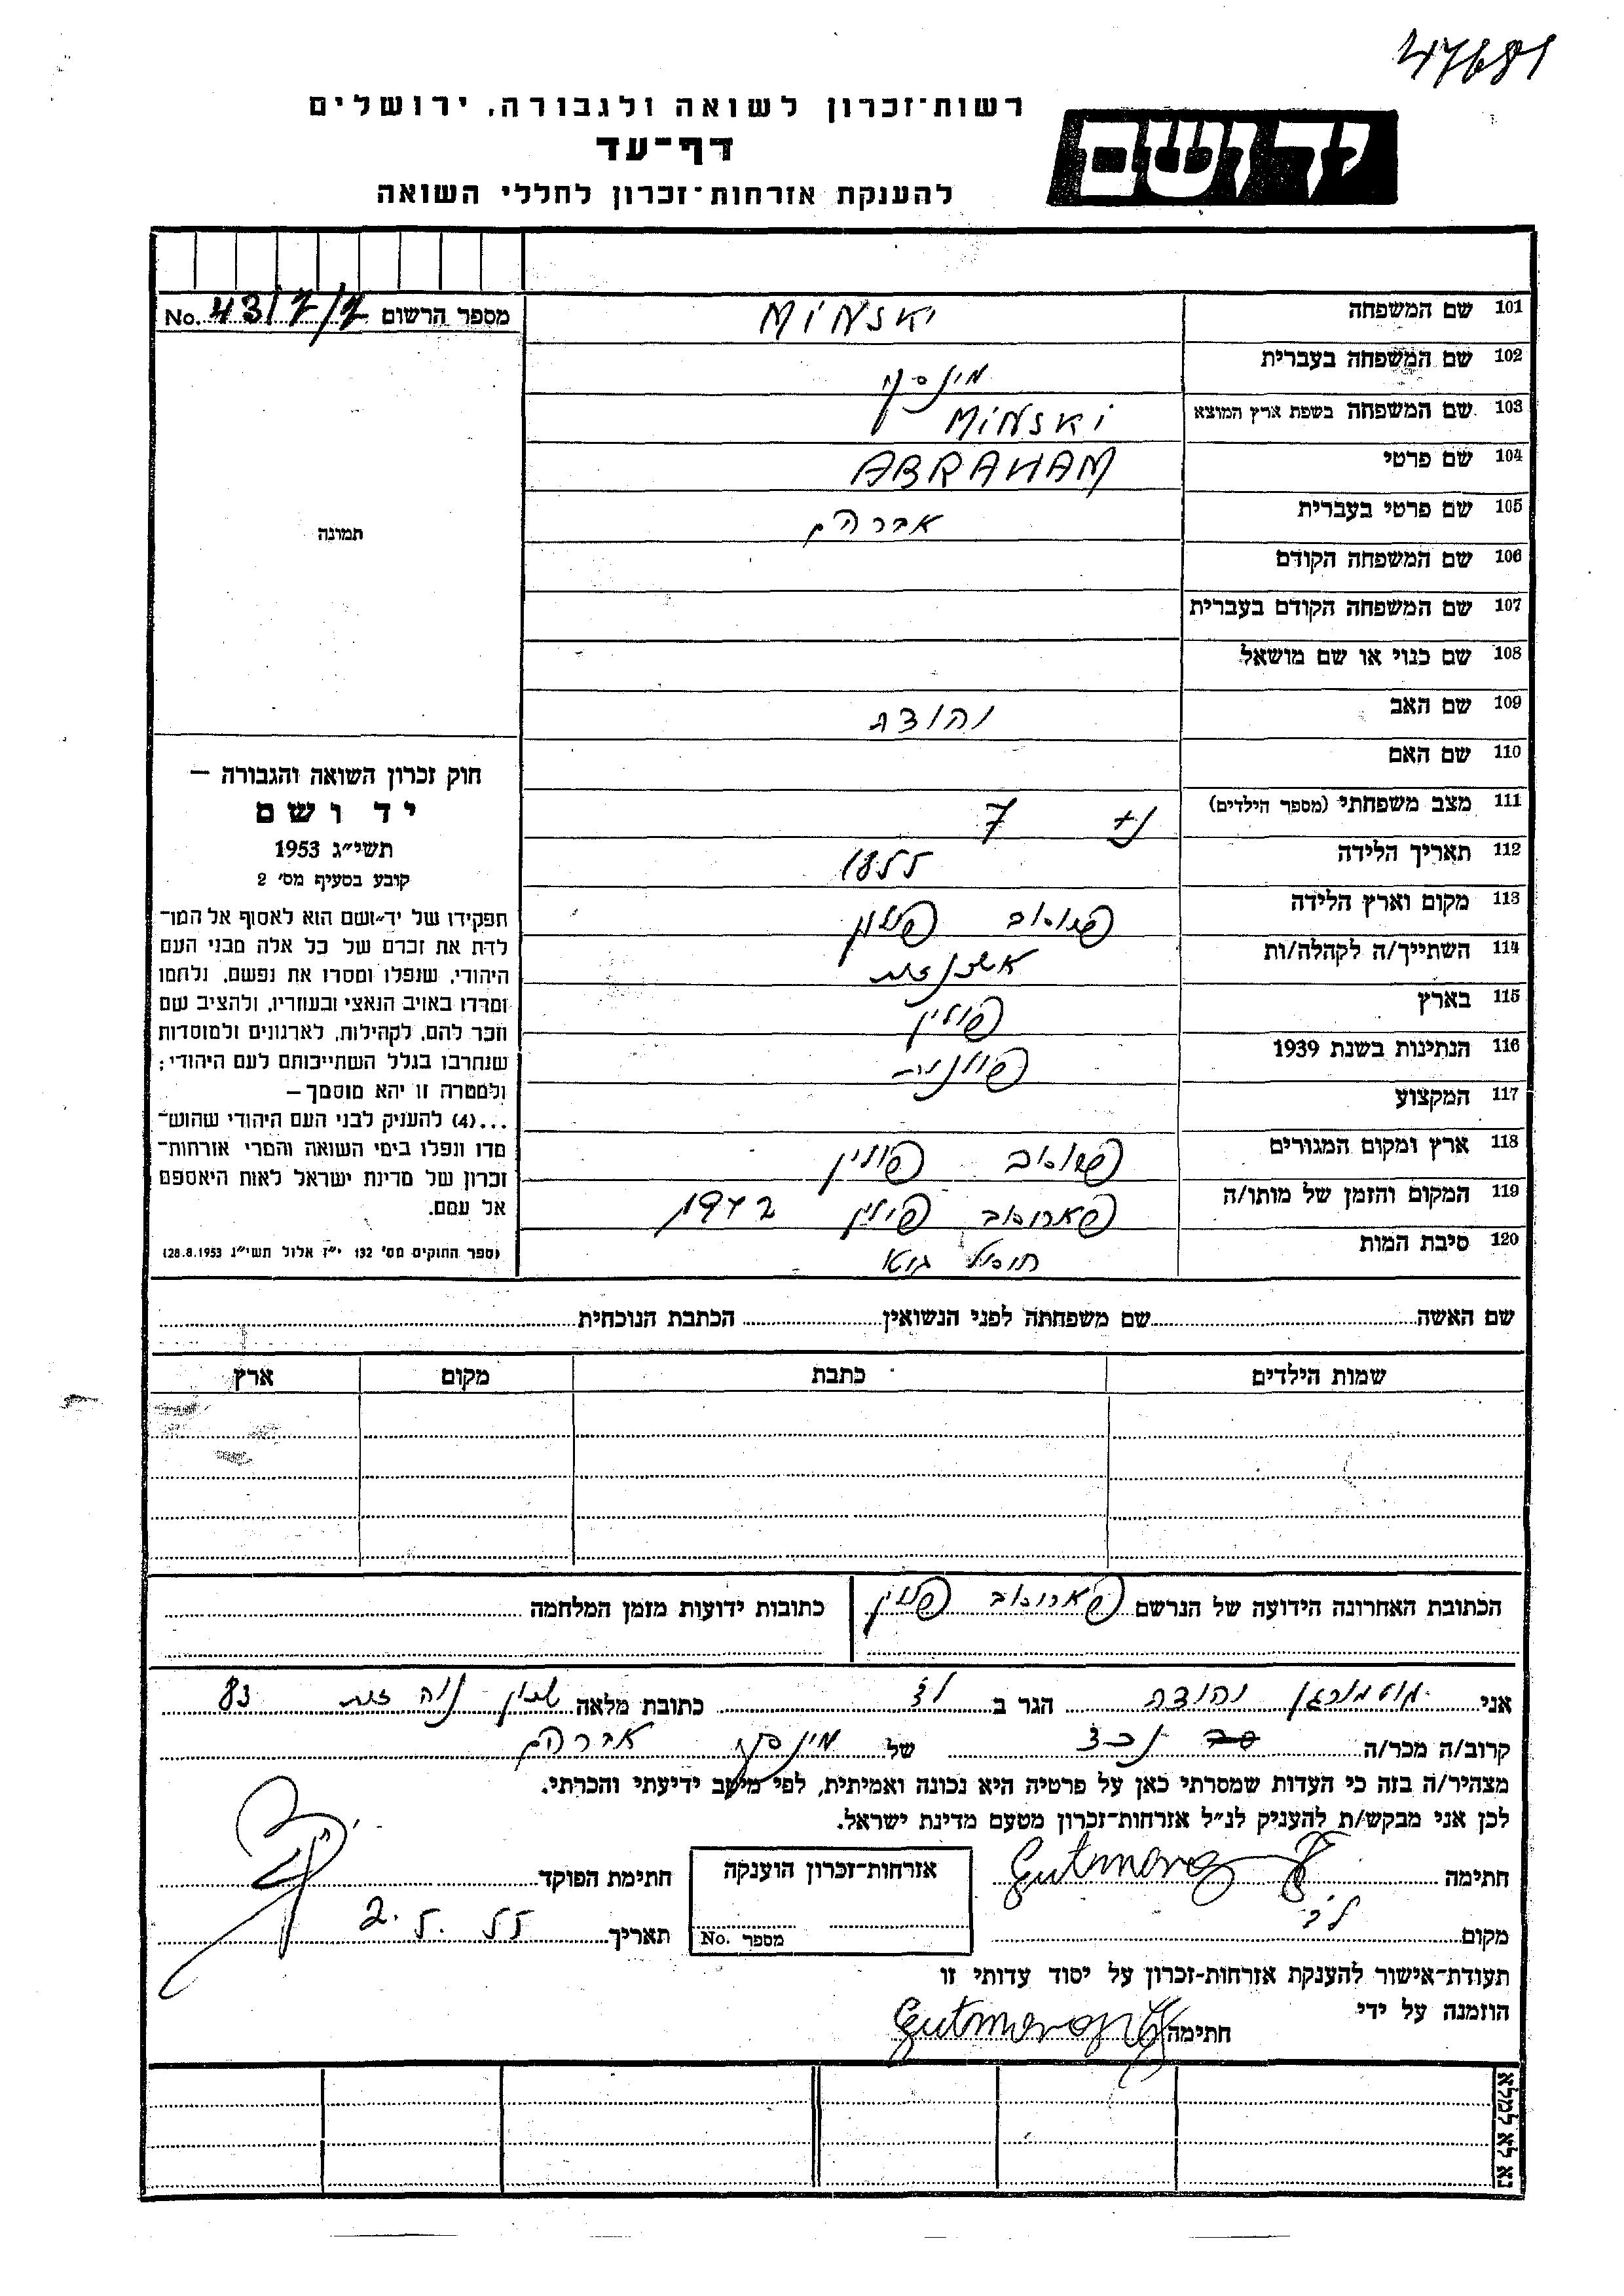 47681
יד ושם
רשות־זכרון לשואה ולגבורה, ירושלים
דף־עד
להענקת אזרחות־זכרון לחללי השואה
מספר הרשום No. 43/7/7
תמונה
101 שם המשפחה MINSKI
102 שם המשפחה בעברית מינסקי
103 שם המשפחה בשפת ארץ המוצא MINSKI
104 שם פרטי ABRAHAM
105 שם פרטי בעברית אברהם
106 שם המשפחה הקודם
107 שם המשפחה הקודם בעברית
108 שם כנוי או שם מושאל
109 שם האב יהודה
110 שם האם
111 מצב משפחתי (מספר הילדים) 7
112 תאריך הלידה 1855
113 מקום וארץ הלידה פולין
114 השתייך/ה לקהלה/ות
115 בארץ פולין
116 הנתינות בשנת 1939 פולנית
117 המקצוע
118 ארץ ומקום המגורים פולין
119 המקום והזמן של מותו/ה פולין
120 סיבת המות
חוק זכרון השואה והגבורה —
יד ושם
תשי״ג 1953
קובע בסעיף מס׳ 2
תפקידו של יד־ושם הוא לאסוף אל המו־
לדת את זכרם של כל אלה מבני העם
היהודי, שנפלו ומסרו את נפשם, נלחמו
ומרדו באויב הנאצי ובעוזריו, ולהציב שם
וזכר להם, לקהילות, לארגונים ולמוסדות
שנחרבו בגלל השתייכותם לעם היהודי;
ולמטרה זו יהא מוסמך —
...(4) להעניק לבני העם היהודי שהוש־
מדו ונפלו בימי השואה והמרי אזרחות־
זכרון של מדינת ישראל לאות היאספם
אל עמם.
(ספר החוקים מס׳ 132 י״ז אלול תשי״ג 28.8.1953)
שם האשה שם משפחתה לפני הנשואין הכתבת הנוכחית
שמות הילדים כתבת מקום ארץ
הכתובת האחרונה הידועה של הנרשם פולין
כתובות ידועות מזמן המלחמה
אני יהודה הגר ב לוד כתובת מלאה 83
קרוב/ה מכר/ה נכד של מינסקי אברהם
מצהיר/ה בזה כי העדות שמסרתי כאן על פרטיה היא נכונה ואמיתית, לפי מיטב ידיעתי והכרתי.
לכן אני מבקש/ת להעניק לנ״ל אזרחות־זכרון מטעם מדינת ישראל.
חתימה
אזרחות־זכרון הוענקה
מספר No.
חתימת הפוקד
מקום לוד
תאריך 2.5.55
תעודת־אישור להענקת אזרחות־זכרון על יסוד עדותי זו
הוזמנה על ידי
חתימה
נא לא למלא